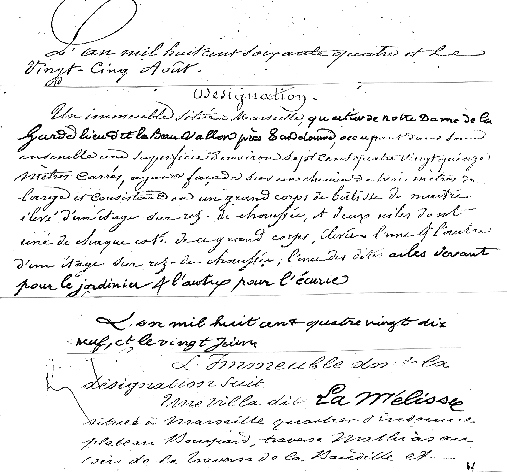 L'an mil huit cent soixante quatre et le
Vingt-Cinq Août.
Désignation.
Un immeuble situé à Marseille, quartier de notre Dame de la
Garde lieu dit la Bau Vallon près Endoume, occupant dans son
ensemble une superficie d'environ Sept Cent quatre Vingt quinze
Mètres Carrés, ayant façade sur un chemin de trois mètres de
large et Consistant en un grand corps de bâtisse de maître
élevé d'un étage sur rez-de chaussée, et deux ailes dont
une de chaque coté de ce grand corps, élevées l'une & l'autre
d'un étage sur rez-de-chaussée; l'une des dites ailes servant
pour le jardinier & l'autre pour l'écurie
L'an mil huit cent quatre vingt dix
neuf, et le vingt Juin
L'Immeuble dont la
désignation suit
Une villa dite La Mélisse
située à Marseille quartier d'Endoume
plateau Bompard, traverse Mathias au
coin de la traverse de la et